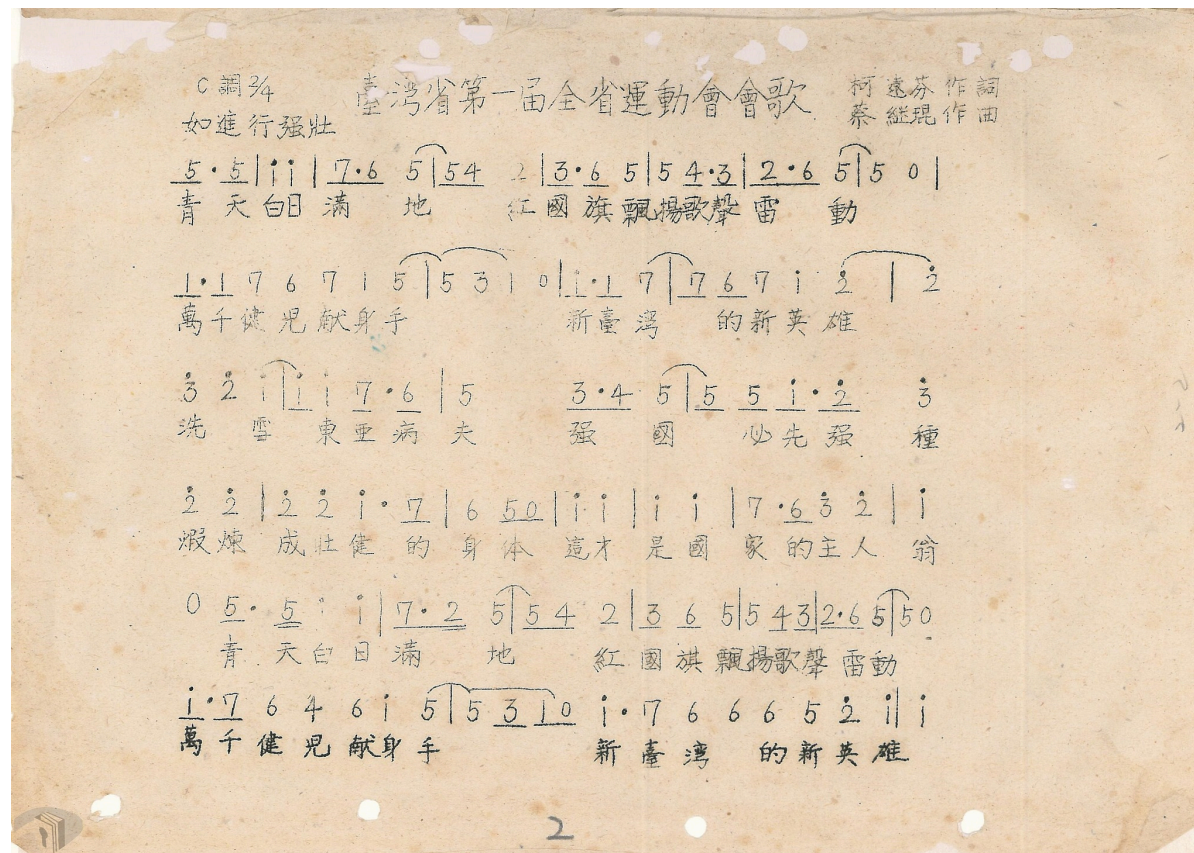 C調 2/4 臺灣省第一届全省運動會會歌 柯遠芬作詞
如進行强壯 蔡継琨作曲
5·5|i i|7·6 5|54 2|3·6 5|5 4·3|2·6 5|5 0|
青天白日滿地 紅國旗飄揚歌聲雷動
1·1 7 6 7 1 5|5 3 1 0|i·1 7|7 6 7 i 2̇|2̇
萬千健児献身手 新臺湾的新英雄
3̇ 2̇ i|i i 7·6|5 3·4 5|5 5 i·2̇ 3̇
洗雪東亜病夫 强國必先强種
2̇ 2̇|2̇ 2̇ i·7|6 50|i i|i i|7·6 3̇ 2̇|i
煆煉成壯健的身体 這才是國家的主人翁
0 5·5 i i|7·2 5|54 2|3 6 5|5 43|2·6 5|50
青天白日滿地 紅國旗飄揚歌聲雷動
i·7 6 4 6 i 5|5 3 1 0 i·7 6 6 6 5 2̇ i|i
萬千健児献身手 新臺湾的新英雄
2